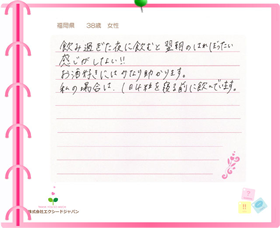 福岡県　38歳　女性
飲み過ぎた夜に飲むと翌朝のはればったい
感じがしない!!
お酒好きにはかなり助かります。
私の場合は、1日4粒を寝る前に飲んでいます。
株式会社エクシードジャパン